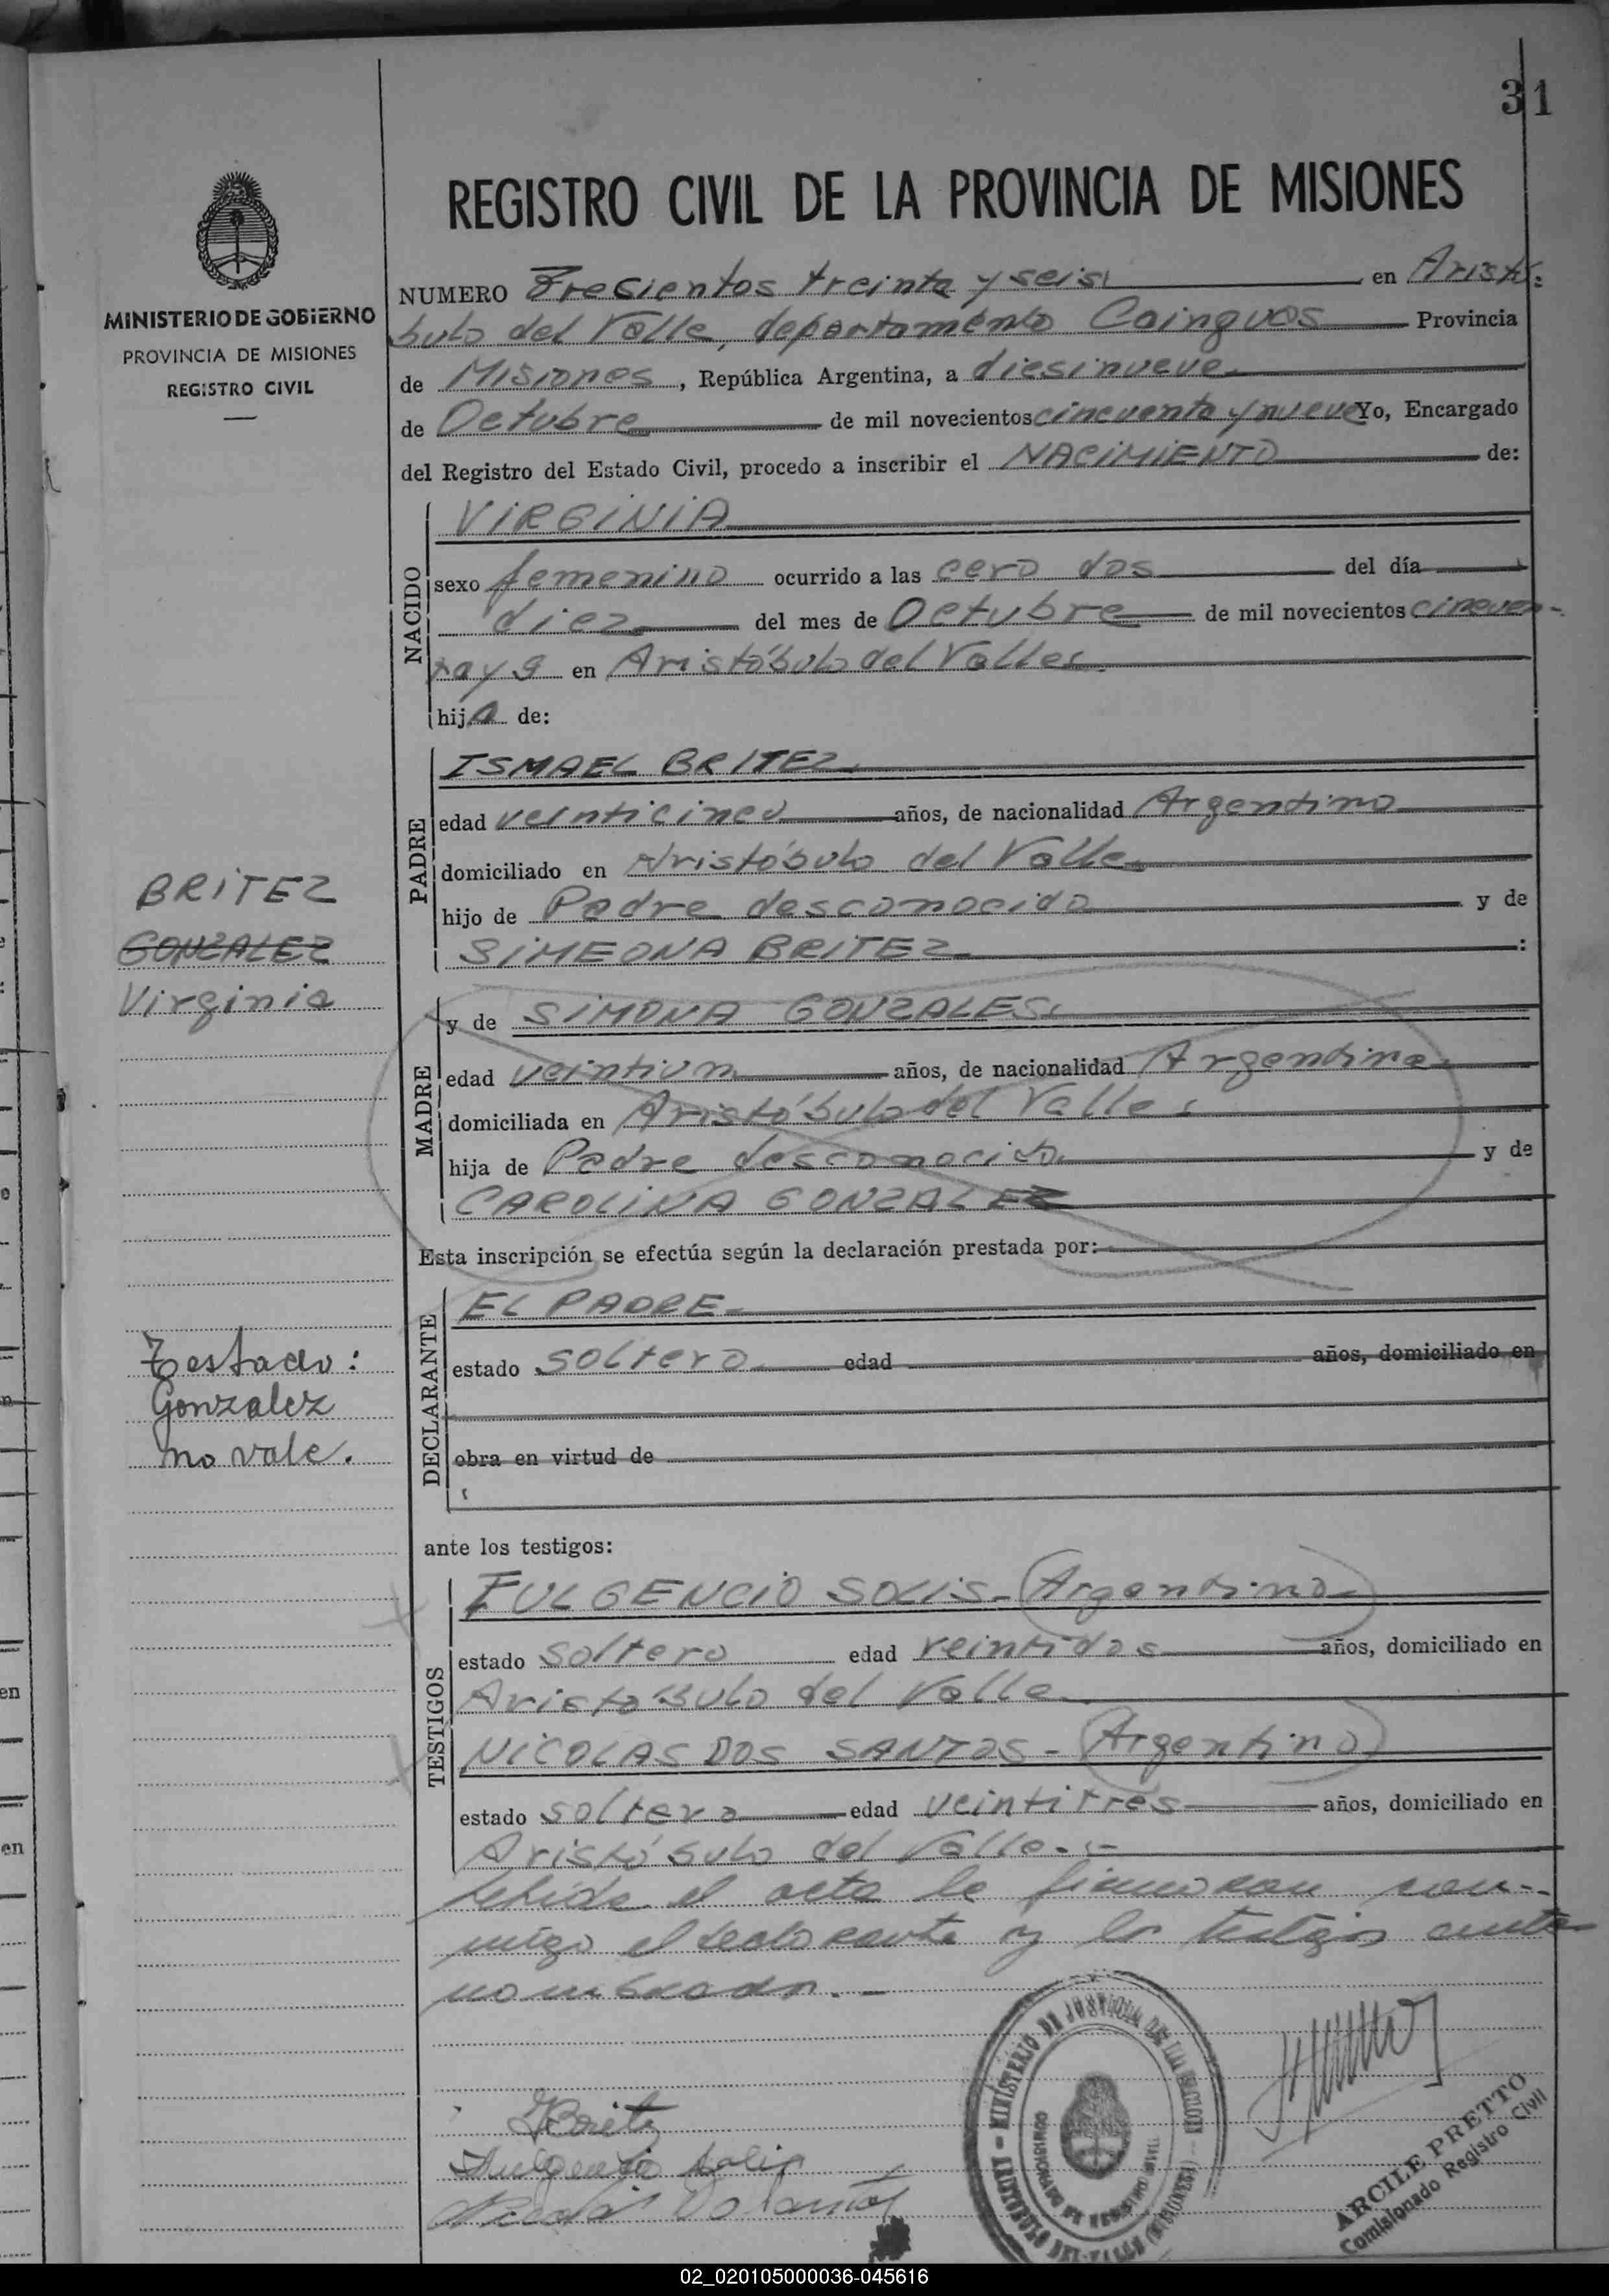 31
REGISTRO CIVIL DE LA PROVINCIA DE MISIONES
MINISTERIO DE GOBIERNO
PROVINCIA DE MISIONES
REGISTRO CIVIL
NUMERO Trecientos treinta y seis en Aristó-
bulo del Valle, departamento Cainguas Provincia
de Misiones, República Argentina, a diesinueve
de Octubre de mil novecientos cincuenta y nueve Yo, Encargado
del Registro del Estado Civil, procedo a inscribir el NACIMIENTO de:
NACIDO
VIRGINIA
sexo femenino ocurrido a las cero dos del día
diez del mes de Octubre de mil novecientos cincuen-
ta y 9 en Aristóbulo del Valle
hija de:
PADRE
ISMAEL BRITEZ
edad veinticinco años, de nacionalidad Argentino
domiciliado en Aristóbulo del Valle
hijo de Padre desconocido y de
SIMEONA BRITEZ
BRITEZ
GONZALEZ
Virginia
MADRE
y de SIMONA GONZALES
edad veintiun años, de nacionalidad Argentina
domiciliada en Aristóbulo del Valle
hija de Padre desconocido y de
CAROLINA GONZALEZ
Esta inscripción se efectúa según la declaración prestada por:
DECLARANTE
EL PADRE
estado soltero edad años, domiciliado en
obra en virtud de
Testado:
Gonzalez
no vale.
ante los testigos:
TESTIGOS
FULGENCIO SOLIS - Argentino
estado soltero edad veintidos años, domiciliado en
Aristóbulo del Valle
NICOLAS DOS SANTOS - Argentino
estado soltero edad veintitres años, domiciliado en
Aristóbulo del Valle.-
Leida el acta la firmaron con-
migo el declarante y los testigos ante
nombrados.-
MINISTERIO DE JUSTICIA DE LA NACION
ARISTOBULO DEL VALLE (MISIONES)
ARCILE PRETTO
Comisionado Registro Civil
02_020105000036-045616